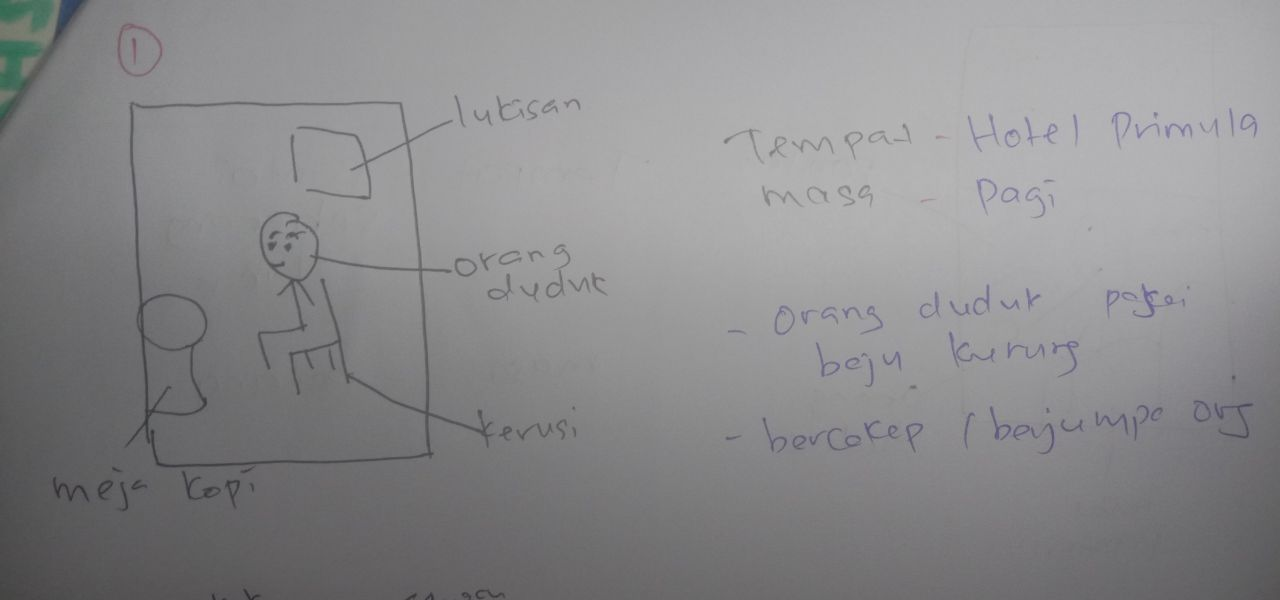 1
lukisan
orang
duduk
kerusi
meja kopi
Tempat - Hotel Primula
masa - Pagi
- Orang duduk pakai
baju kurung
- bercakap / berjumpa org